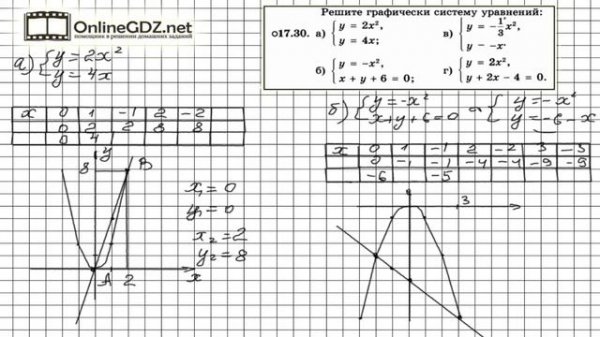 OnlineGDZ.net
помощник в решении домашних заданий
Решите графически систему уравнений:
○17.30. а) { y = 2x², y = 4x;
в) { y = -1/3 x², y = -x·
б) { y = -x², x + y + 6 = 0;
г) { y = 2x², y + 2x - 4 = 0.
а) { y = 2x²
y = 4x
x 0 1 -1 2 -2
0 2 2 8 8
0 4
y
8
B
A 2 x
x₁ = 0
y₁ = 0
x₂ = 2
y₂ = 8
б) { y = -x²
x + y + 6 = 0
{ y = -x²
y = -6 - x
x 0 1 -1 2 -2 3 -3
0 -1 -1 -4 -4 -9 -9
-6 -5
3